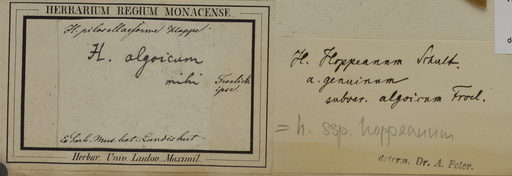 HERBARIUM REGIUM MONACENSE.
H. pilosellaeforme Hoppe
H. algoicum
mihi Froelich
ipse.
Ex herb. Mus. bot. Landishut
Herbar. Univ. Ludov. Maximil.
H. Hoppeanum Schult.
α. genuinum
subvar. algoicum Froel.
= h. ssp. hoppeanum
determ. Dr. A. Peter.